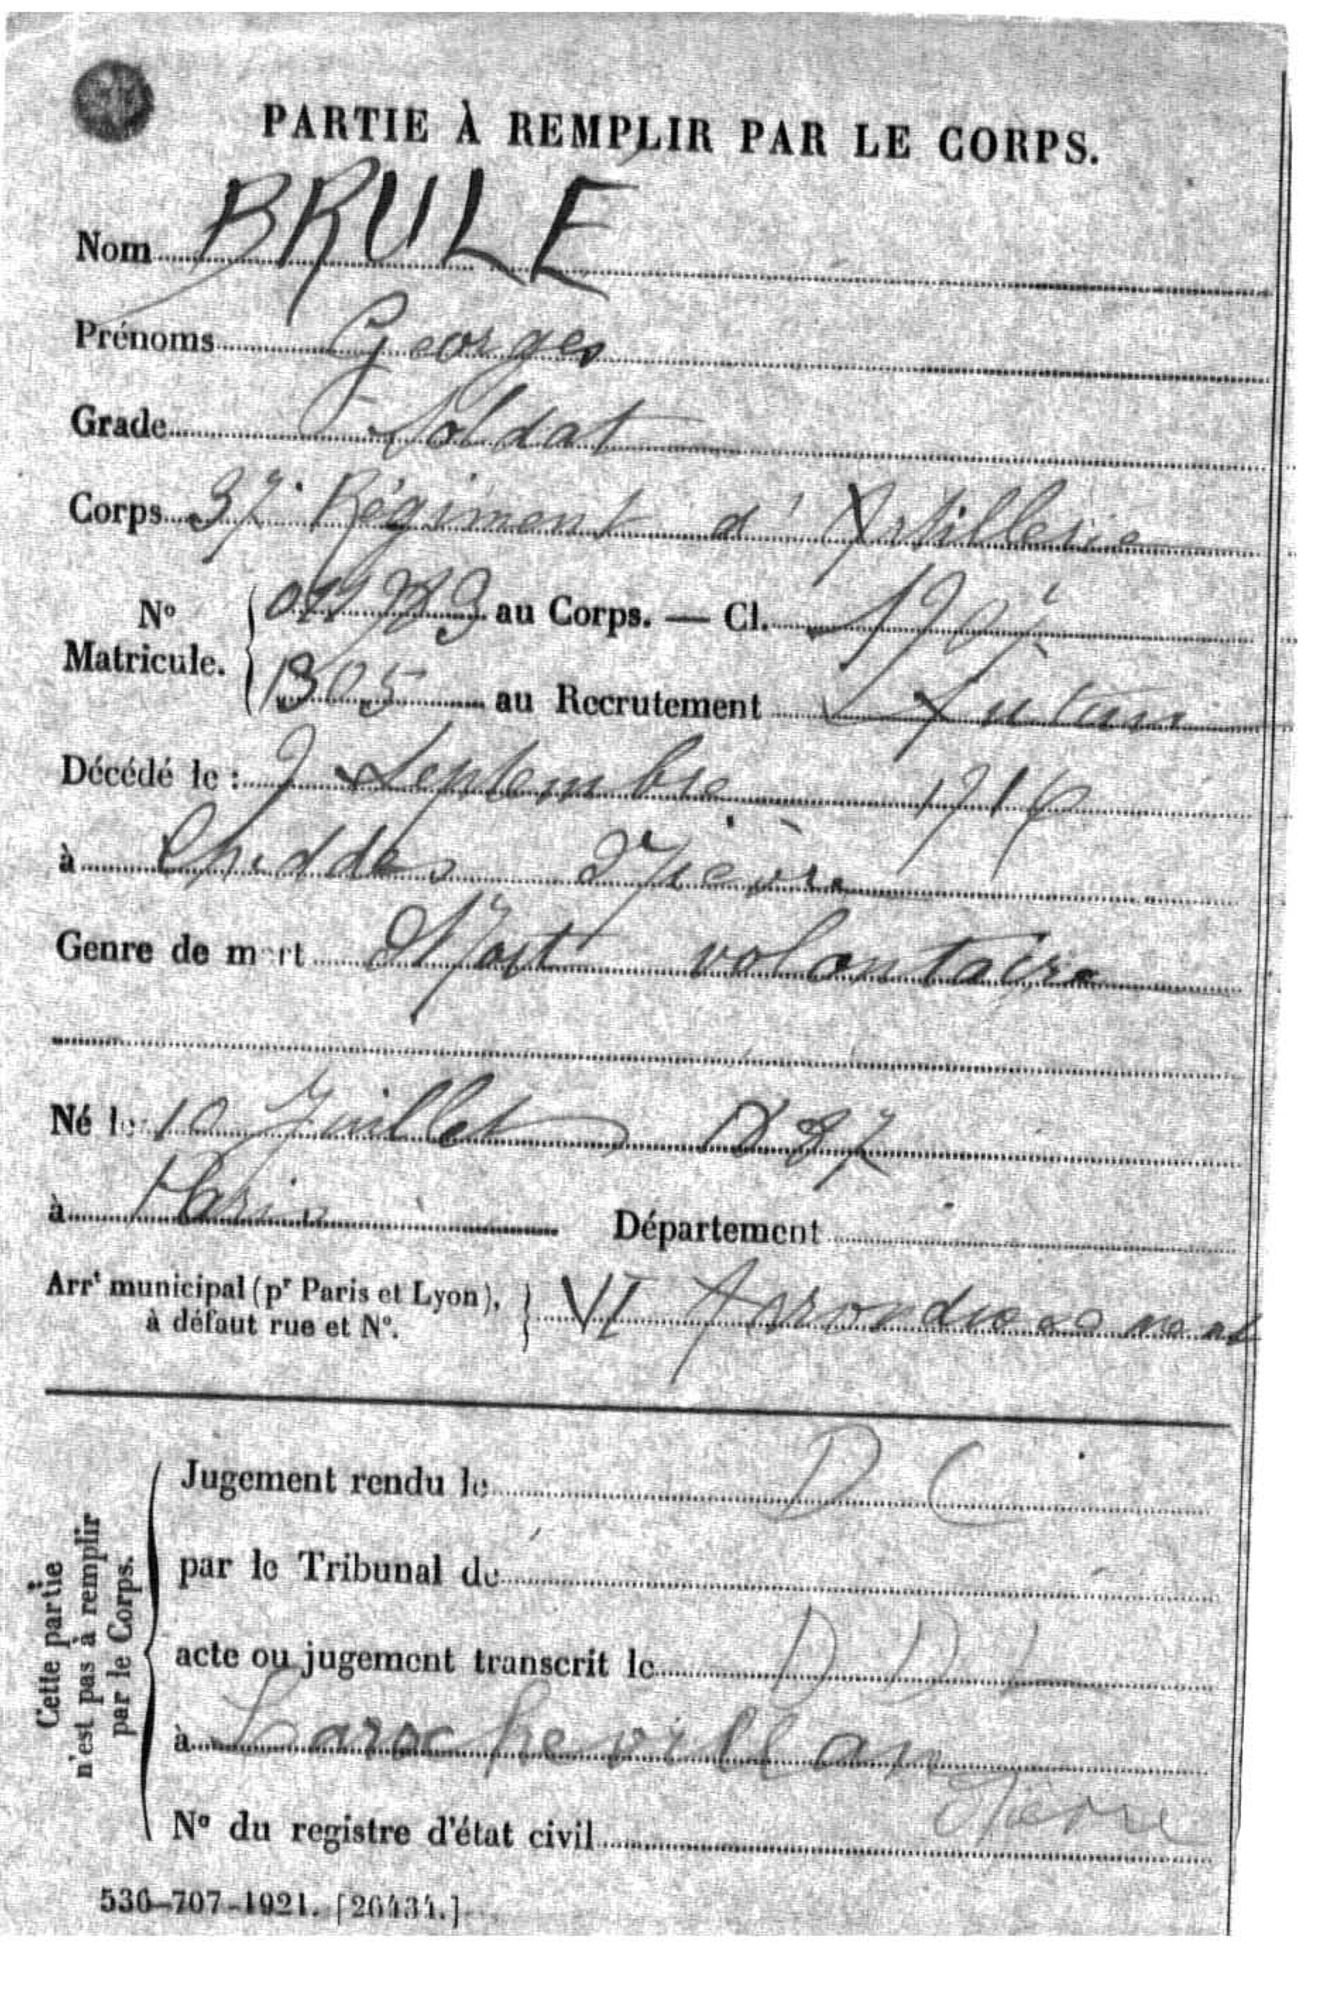 PARTIE À REMPLIR PAR LE CORPS.
Nom BRULE
Prénoms Georges
Grade Soldat
Corps 37 Régiment d'Artillerie
N° Matricule. au Corps. — Cl. 1907
1305 au Recrutement Autun
Décédé le : 9 Septembre 1916
à Chiddes Nièvre
Genre de mort Mort volontaire
Né le 10 Juillet 1887
à Paris Département
Arrt municipal (pr Paris et Lyon), à défaut rue et N°. VI Arrondissement
Cette partie n'est pas à remplir par le Corps.
Jugement rendu le D C
par le Tribunal de
acte ou jugement transcrit le D D L
à Larochemillay
Nièvre
N° du registre d'état civil
536-707-1921. [26434.]